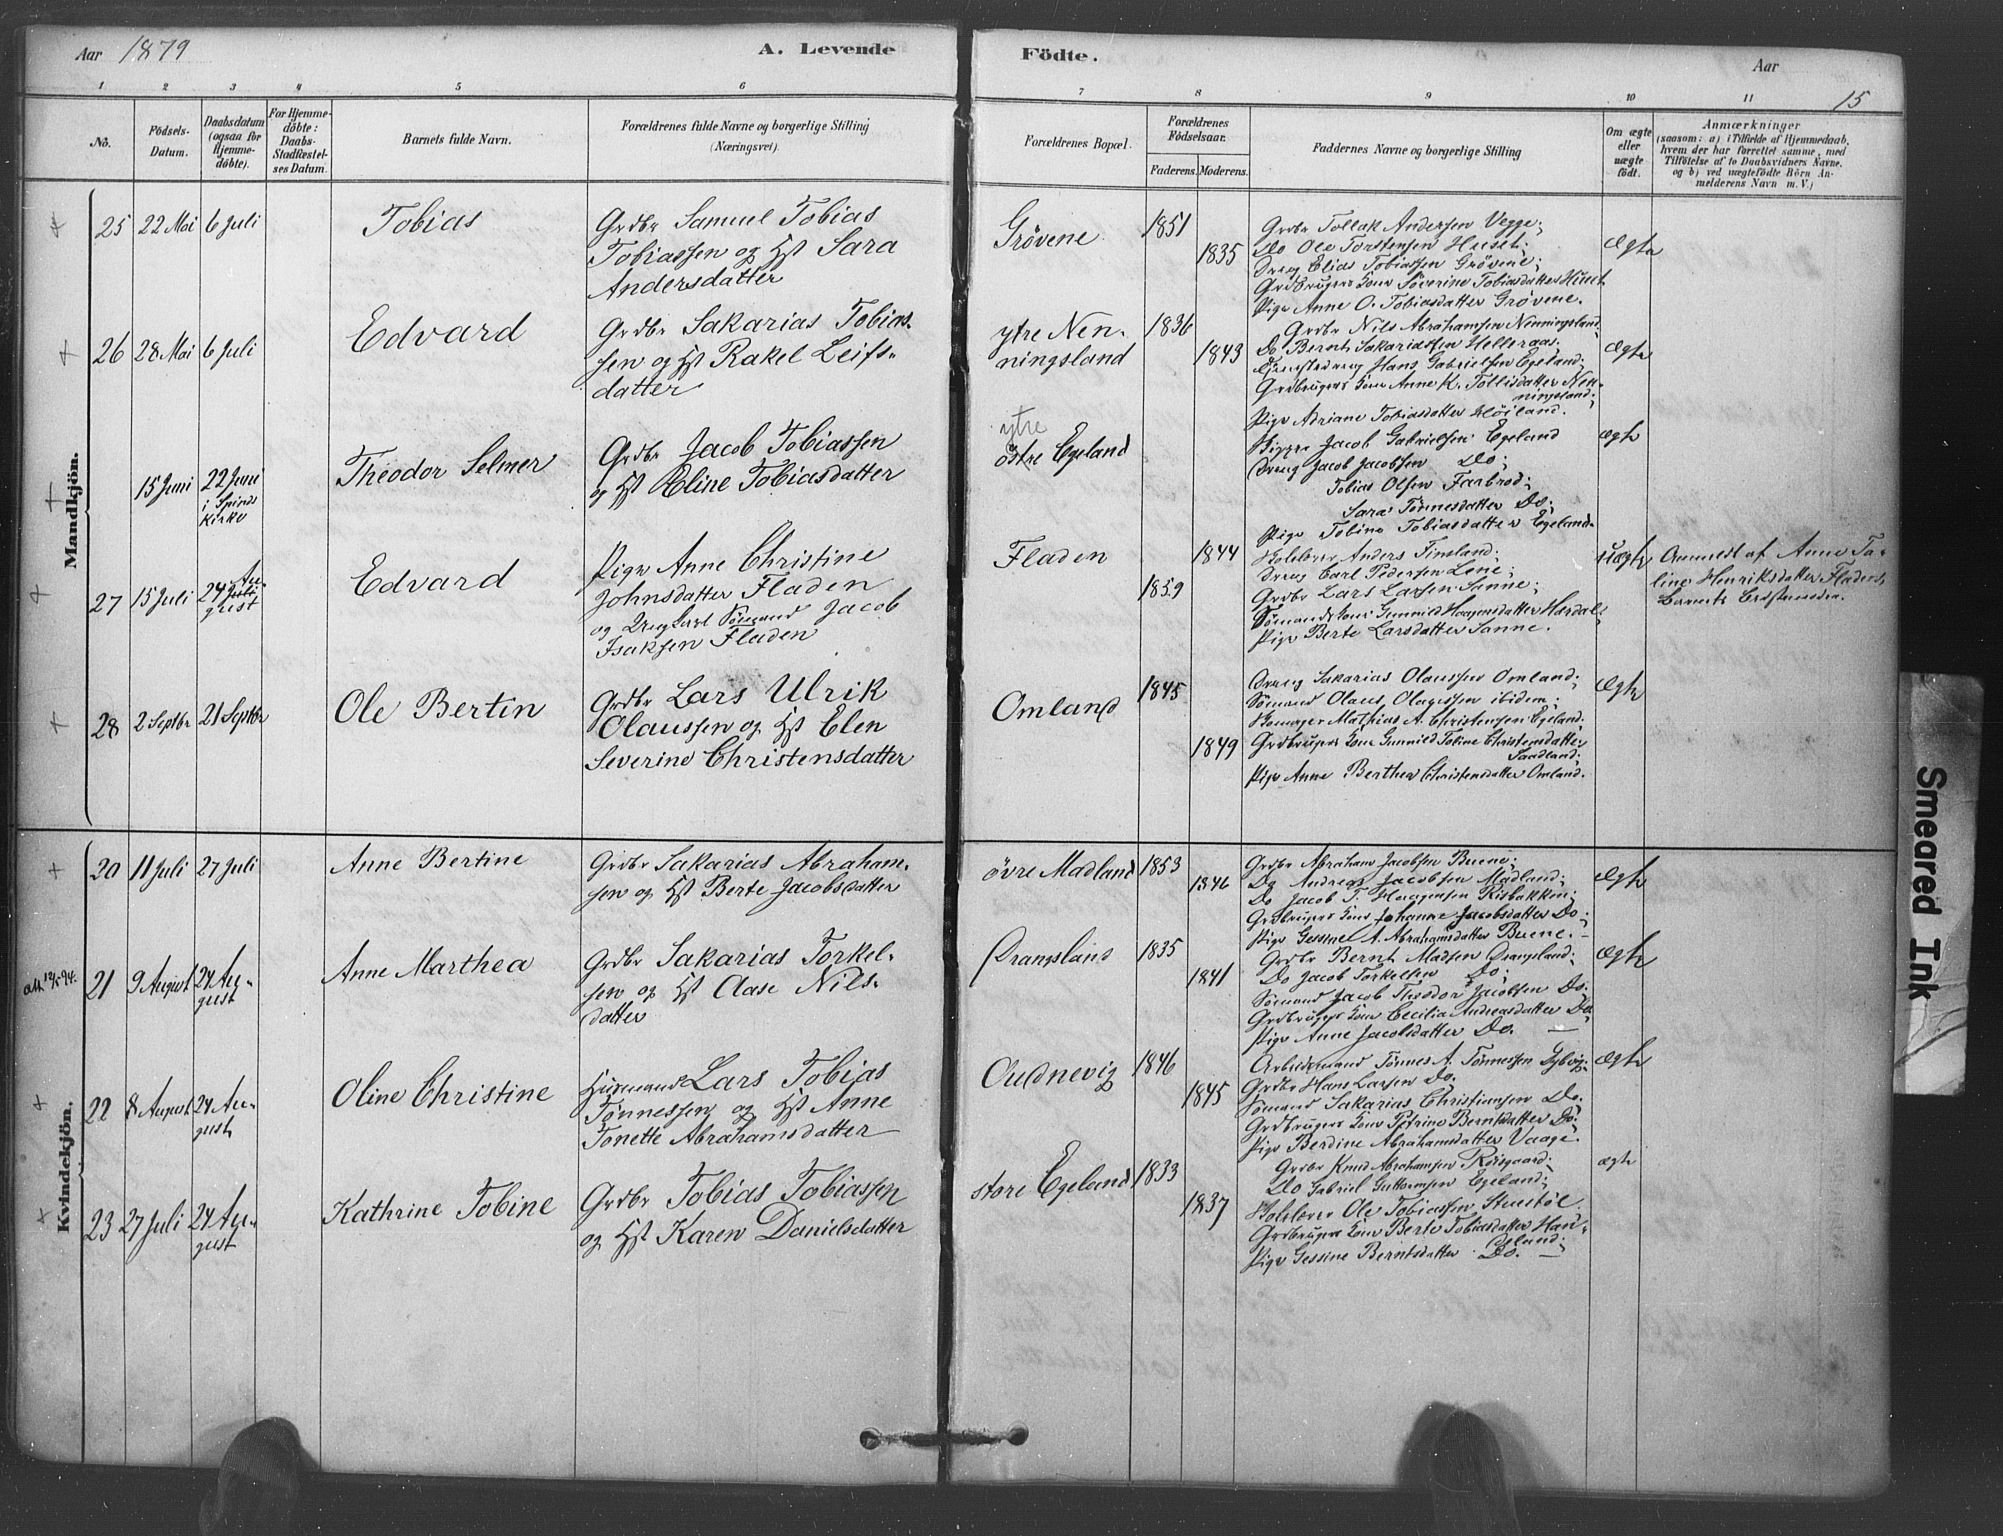 Aar 1879
A. Levende
Födte.
Aar
15
1 2 3 4 5 6 7 8 9 10 11
No.
Födsels-
Datum.
Daabsdatum
(ogsaa for
Hjemme-
döbte).
For Hjemme-
döbte:
Daabs-
Stadfæstel-
ses Datum.
Barnets fulde Navn.
Forældrenes fulde Navne og borgerlige Stilling
(Næringsvei).
Forældrenes Bopæl.
Forældrenes
Födselsaar.
Faderens. Moderens.
Faddernes Navne og borgerlige Stilling
Om ægte
eller
uægte
født.
Anmærkninger
(saasom: a) i Tilfælde af Hjemmedaab,
hvem der har forrettet samme, med
Tilföielse af to Daabsvidners Navne,
og b) ved uægtefödte Börn An-
melderens Navn m. V.)
Mandkjön.
25 22 Mai 6 Juli
Tobias
Grdbr Samuel Tobias
Tobiassen og Hst Sara
Andersdatter
Grövene
1851
1835
Grdbr Tollak Andersen Vegge;
Do Ole Torstensen Huset;
Dreng Elias Tobiassen Grövene;
Grdbrugers Kone Severine Tobiasdatter Huset
Pige Anne O. Tobiasdatter Grövene.
Ægte
26 28 Mai 6 Juli
Edvard
Grdbr Sakarias Tobias-
sen og Hst Rakel Leifs-
datter
ytre Nen-
ningsland
1836
1843
Grdbr Nils Abrahamsen Nenningsland
Do Bernt Sakariassen Helleraas;
Tjenestedreng Hans Gabrielsen Egeland;
Grdbrugers Kone Anne K. Tollisdatter Nen-
ningsland;
Pige Adriane Tobiasdatter Höiland.
Ægte
15 Juni 22 Juni
i Spinds
Kirke
Theodor Selmer
Grdbr Jacob Tobiassen
og Hst Eline Tobiasdatter
ytre
östre Egeland
Jacob Gabrielsen Egeland
Dreng Jacob Jacobsen Do;
Tobias Olsen Farbrod;
Sara Tönnesdatter Do;
Pige Tobine Tobiasdatter Egeland.
Ægte
27 15 Juli 24 Au-
gust
Edvard
Pige Anne Christine
Johnsdatter Fladen
og Ungkarl Sömand Jacob
Isaksen Fladen
Fladen
1844
1859
Anders Timland;
Dreng Carl Pedersen Lene;
Grdbr Lars Larsen Sanne;
Sömands Kone Gunnild Haagensdatter
Pige Berte Larsdatter Sanne.
Uægte
Anmeldt af Anne Ta-
line Henriksdatter Fladen,
Barnets Bedstemoder.
28 2 Septbr 21 Septbr
Ole Bertin
Grdbr Lars Ulrik
Olaussen og Hst Elen
Severine Christensdatter
Omland
1845
1849
Dreng Sakarias Olaussen Omland;
Sömand Olaus Olaussen ibidem;
Mathias A. Christensen Egeland.
Grdbrugers Kone Gunnild Toline Christensdatter
Saadland;
Pige Anne Berthe Christensdatter Omland.
Ægte
Kvindekjön.
20 11 Juli 27 Juli
Anne Bertine
Grdbr Sakarias Abraham-
sen og Hst Berte Jacobsdatter
övre Madland
1853
1846
Grdbr Abraham Jacobsen Buene;
Do Andreas Jacobsen Madland;
Do Jacob T. Haagensen Risbakken;
Grdbrugers Kone Johanne Jacobsdatter Do;
Pige Gessine A. Abrahamsdatter Buene.
Ægte
21 9 August 24 Au-
gust
Anne Marthea
Grdbr Sakarias Torkel-
sen og Hst Aase Nils-
datter
Drangsland
1835
1841
Grdbr Bernt Madsen Drangsland;
Do Jacob Torkelsen Do;
Sömand Jacob Theodor Jacobsen Do.
Grdbrugers Kone Cecilia Andreasdatter Do.
Pige Anne Jacobsdatter Do.
Ægte
22 8 August 24 Au-
gust
Oline Christine
Husmand Lars Tobias
Tönnessen og Hst Anne
Tonette Abrahamsdatter
Oudnevig
1846
1845
Arbeidsmand Tönnes A. Tönnessen
Grdbr Hans Larsen Do.
Sömand Sakarias Christiansen Do.
Grdbrugers Kone Petrine Berntsdatter Do;
Pige Berdine Abrahamsdatter Vaage.
Ægte
23 27 Juli 24 Au-
gust
Kathrine Tobine
Grdbr Tobias Tobiassen
og Hst Karen Danielsdatter
store Egeland
1833
1837
Grdbr Knud Abrahamsen Röisgaard;
Do Gabriel Guttormsen Egeland;
Ole Tobiassen Stuestöl
Grdbrugers Kone Berte Tobiasdatter Han-
Egeland;
Pige Gessine Berntsdatter Do.
Ægte
Smeared Ink